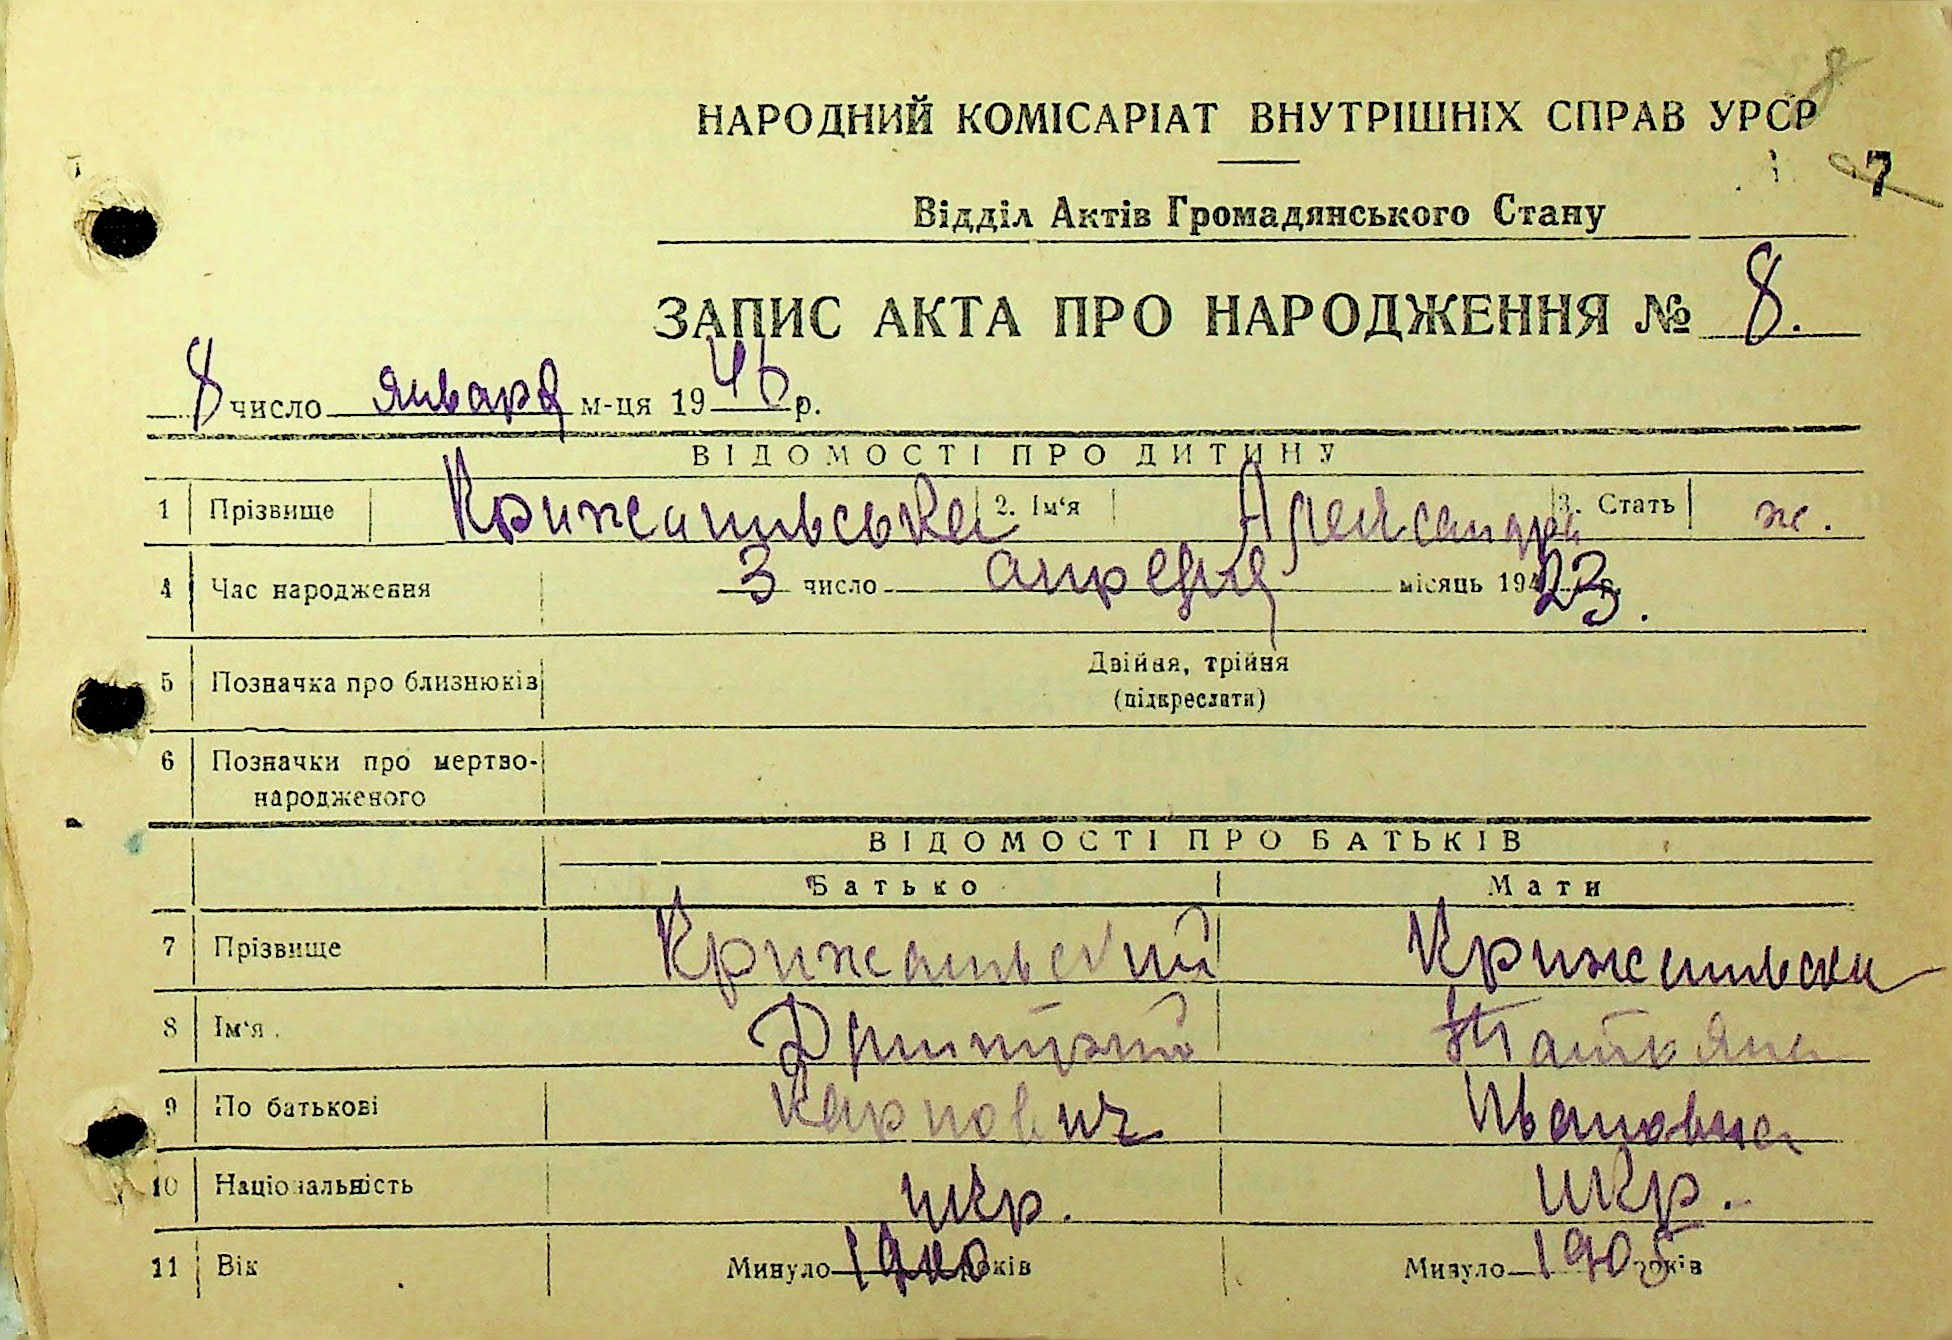 8
НАРОДНИЙ КОМІСАРІАТ ВНУТРІШНІХ СПРАВ УРСР
7
Відділ Актів Громадянського Стану
ЗАПИС АКТА ПРО НАРОДЖЕННЯ № 8.
8 число января м-ця 1946 р.
ВІДОМОСТІ ПРО ДИТИНУ
1 Прізвище Крижанивська 2. Ім'я Александра 3. Стать ж.
4 Час народження 3 число апреля місяць 1923 р.
5 Позначка про близнюків Двійня, трійня
(підкреслити)
6 Позначки про мертво-
народженого
ВІДОМОСТІ ПРО БАТЬКІВ
Батько Мати
7 Прізвище
8 Ім'я Дмитрий Татьяна
9 По батькові Карпович Ивановна
10 Національність укр. укр.
11 Вік Минуло років Минуло 1905 років